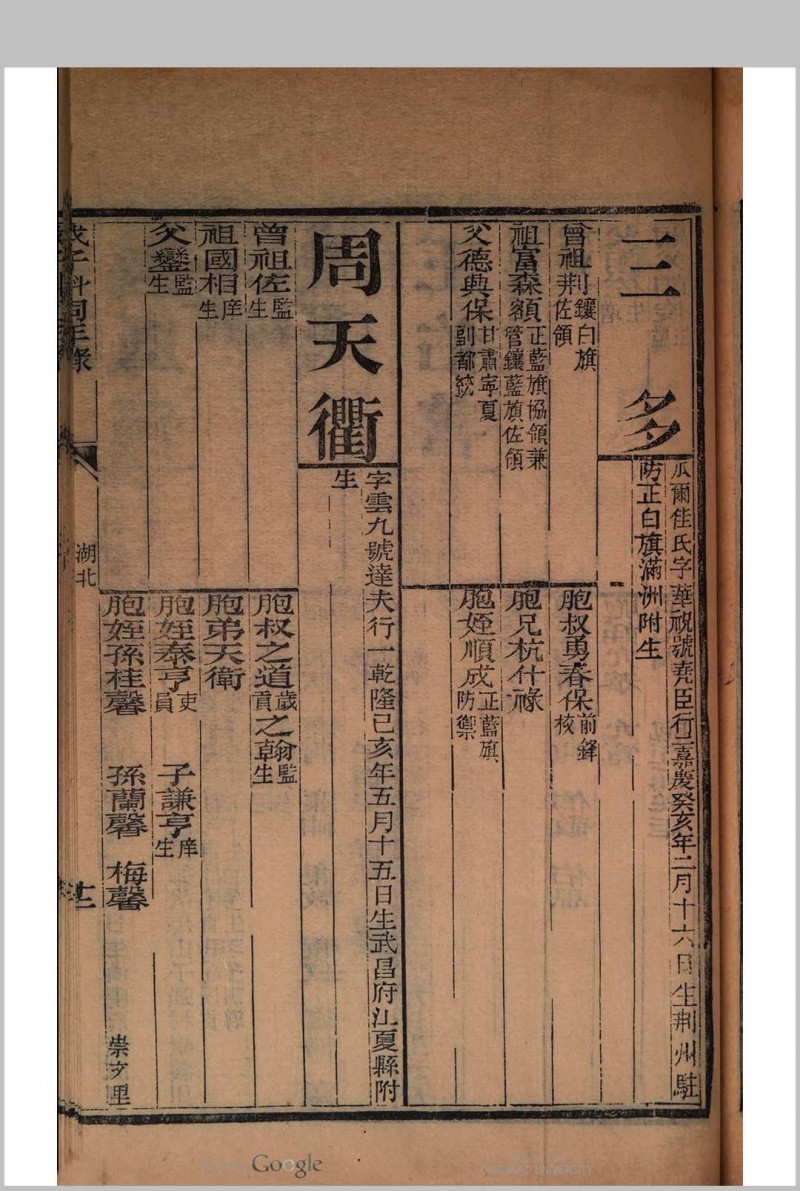 三多
瓜爾佳氏字華祝號堯臣行二嘉慶癸亥年二月十六日生荆州駐
防正白旗滿洲附生
曾祖荆鑲白旗佐領
祖富森額正藍旗協領兼管鑲藍旗佐領
父德興保甘肅寧夏副都統
胞叔勇春保前鋒校
胞兄杭什祿
胞姪順成正藍旗防禦
周天衢
字雲九號達夫行一乾隆己亥年五月十五日生武昌府江夏縣附
生
曾祖佐監生
祖國相庠生
父鑾監生
胞叔之道歲貢之翰監生
胞弟天衛
胞姪泰亨吏員 子謙亨庠生
胞姪孫桂馨 孫蘭馨 梅馨
戊子科同年錄
湖北
崇文里
Google